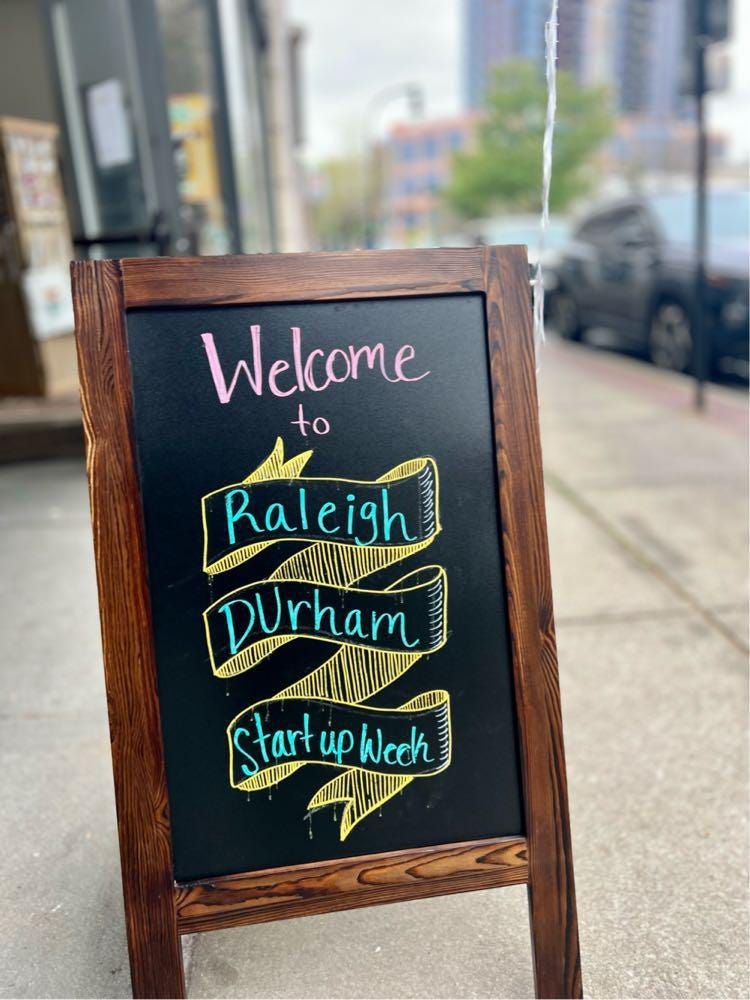 Welcome
to
Raleigh
DUrham
Startup Week